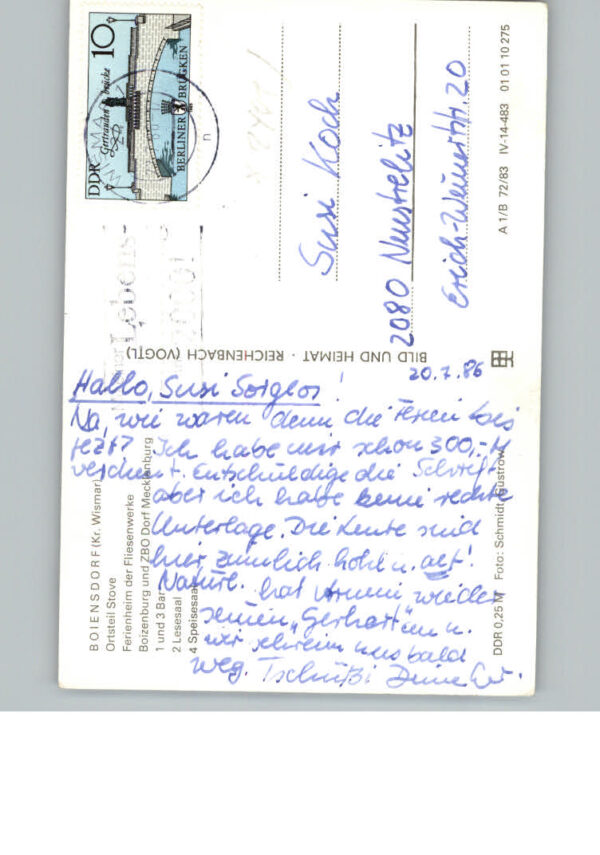 DDR 10
Gertraudenbrücke
BERLINER BRÜCKEN
Lebens
Susi Koch
2080 Neustrelitz
Erich-Weinertstr. 20
A 1/B 72/83 IV-14-483 01 01 10 275
BILD UND HEIMAT · REICHENBACH (VOGTL)
20.7.86
Hallo, Susi Sorglos!
Na, wie waren denn die Ferien bis
jetzt? Ich habe mir schon 300,-M
verdient. Entschuldige die Schrift
aber ich habe keine rechte
Unterlage. Die Leute sind
hier ziemlich hohl u. alt!
Natürl. hat Armin wieder
seinen „Gerhart" an u.
wir schrein uns bald
weg. Tschüßi
BOIENSDORF (Kr. Wismar)
Ortsteil Stove
Ferienheim der Fliesenwerke
Boizenburg und ZBO Dorf Mecklenburg
1 und 3 Bar
2 Lesesaal
4 Speisesaal
DDR 0,25 M Foto: Schmidt, Güstrow